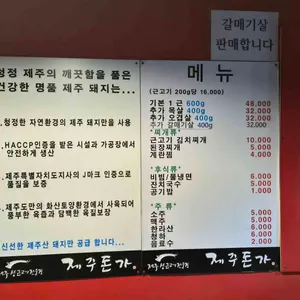 갈매기살
판매합니다
청정 제주의 깨끗함을 품은
건강한 명품 제주 돼지는...
청정한 자연환경의 제주 돼지만을 사용
HACCP인증을 받은 시설과 가공장에서
안전하게 생산
제주특별자치도지사의 J마크 인증으로
품질을 보증
제주도만의 화산토양환경에서 사육되어
풍부한 육즙과 담백한 육질보장
신선한 제주산 돼지만 공급 합니다...
제주돈가
메뉴
(근고기 200g당 16,000)
기본 1근 600g 48,000
추가 목살 400g 32,000
추가 오겹살 400g 32,000
추가 갈매기살 400g 32,000
*찌개류*
근고기 김치찌개 10,000
된장찌개 5,000
계란찜 4,000
*후식류*
비빔/물냉면 6,000
잔치국수 5,000
공기밥 1,000
*주 류*
소주 5,000
맥주 5,000
한라산 6,000
청하 6,000
음료수 2,000
제주돈가